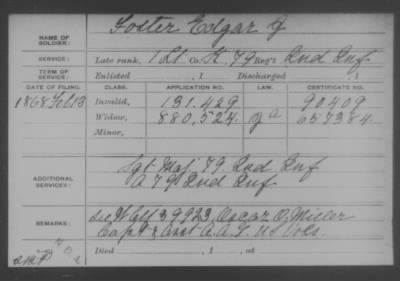 NAME OF SOLDIER: Foster Edgar J
SERVICE: Late rank, 1 Lt Co. K, 79 Reg't Ind Inf
TERM OF SERVICE: Enlisted , 1 Discharged , 1
DATE OF FILING. CLASS. APPLICATION NO. LAW. CERTIFICATE NO.
1868 Feb 13 Invalid, 131.429 90409
Widow, 880,524 657384
Minor,
ADDITIONAL SERVICES: Sgt Maj 79 Ind Inf
A 79 Ind Inf
REMARKS: See 39923, Oscar O. Miller
Capt & Asst A.A.G. US Vols.
Died , 1 , at